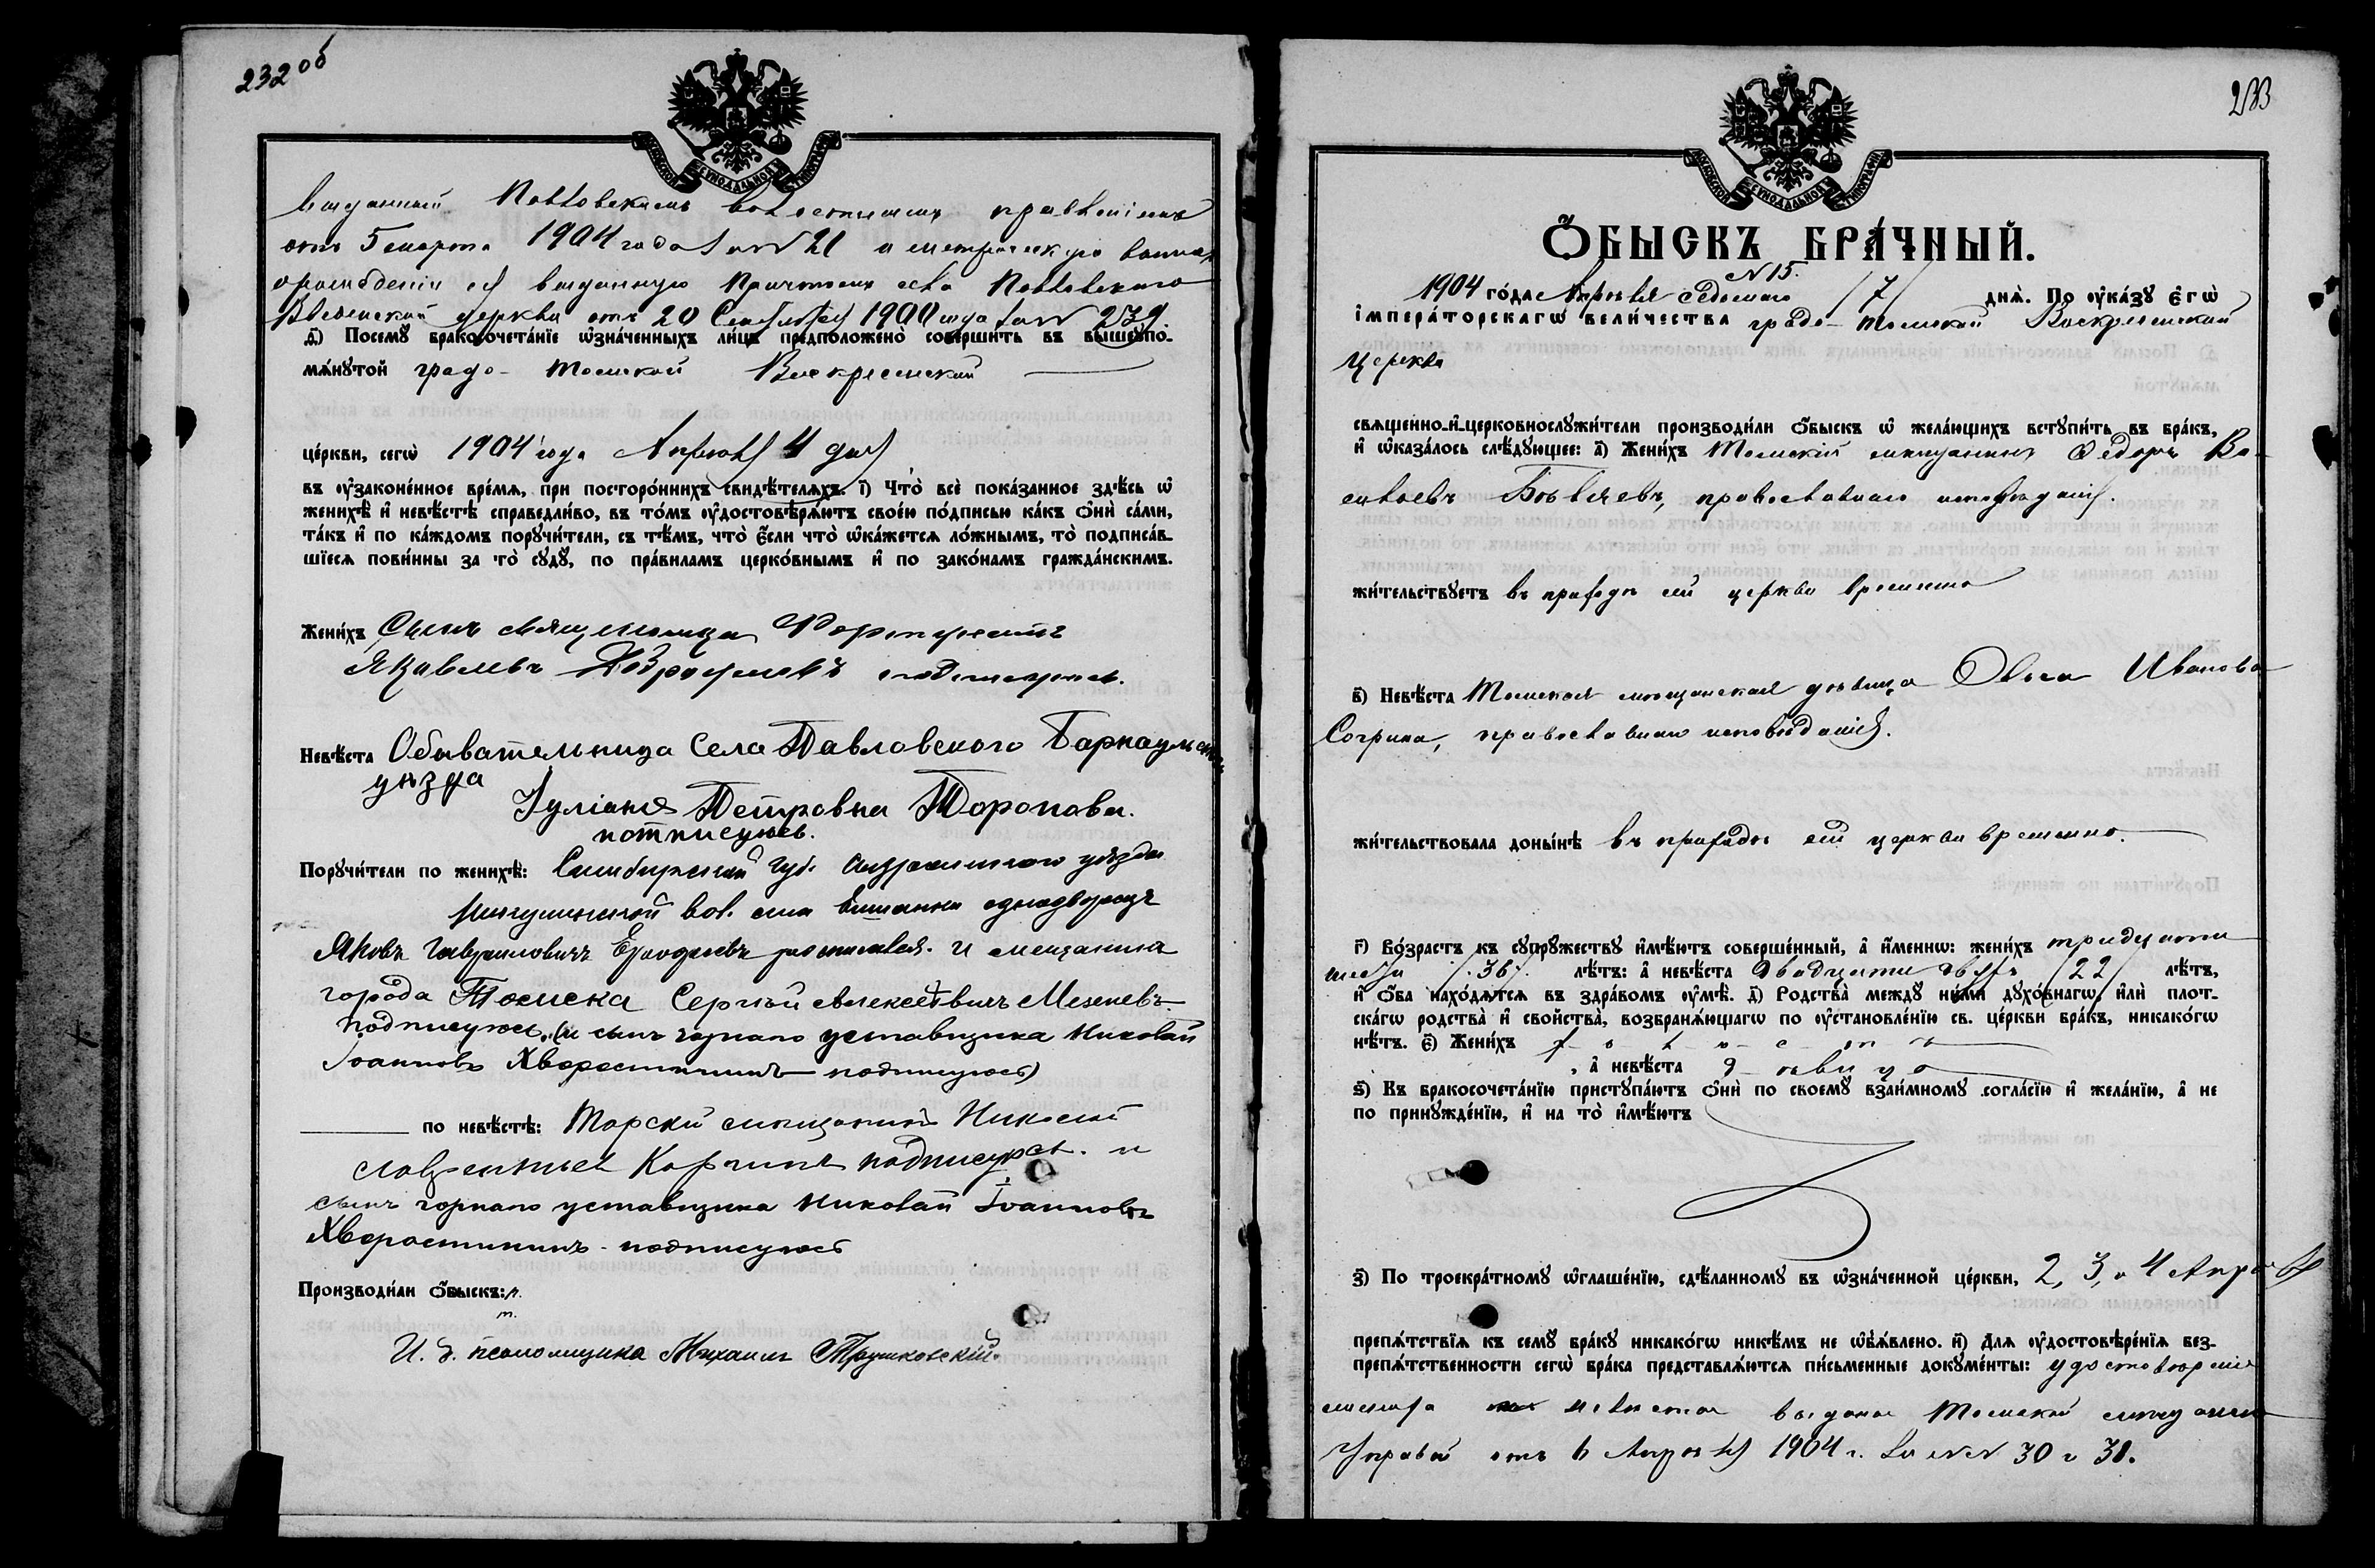 232 об
МОСКОВСКОЙ СѴНОДАЛЬНОЙ ТИПОГРАФІИ
выданный Павловскимъ волостнымъ правленіемъ
отъ 5 марта 1904 года за № 21 и метрическую выпись
о рожденіи ея выданную Причтомъ села Павловскаго
Введенской церкви отъ 20 1900 года за № 239.
ѳ҃) Посемꙋ̀ бракосочета́нїе ѡ҆зна́ченныхъ ли́цъ предположено̀ соверши́ть въ вышеꙋпо-
мѧ́нꙋтой градо-Томской Воскресенской
це́ркви, сегѡ̀ 1904 года Апрѣля 4 дня
въ ᲂу҆законе́нное вре́мѧ, при посторо́ннихъ свидѣ́телѧхъ. і҃) Что̀ всѐ пока́занное здѣ́сь ѡ҆
женихѣ̀ и҆ невѣ́стѣ справедли́во, въ то́мъ ᲂу҆достовѣрѧ́ютъ свое́ю по́дписью ка́къ ѻ҆нѝ са́ми,
та́къ и҆ по ка́ждомъ порꙋчи́тели, съ тѣ́мъ, что̀ є҆́сли что̀ ѡ҆ка́жетсѧ ло́жнымъ, то̀ подписа́в-
шїесѧ пови́нны за то̀ сꙋдꙋ̀, по пра́виламъ церко́внымъ и҆ по зако́намъ гражда́нскимъ.
Жени́хъ Сынъ священника
Яковлевъ подписуюсь.
Невѣ́ста Обывательница Села Павловского Барнаульскаго
уѣзда
Іуліанія Петровна Торопова.
потписуюсь.
Порꙋчи́тели по женихѣ̀: Симбирской губ. уѣзда
вол. села однодворецъ
Яковъ Гавриловичъ росписался. и мещанинъ
города Томска Сергѣй Алексѣевичъ Мезеневъ
подписуюсь. (и сынъ горнаго уставщика Николай
Іоанновъ Хворостининъ подписуюсь)
по невѣ́стѣ: мѣщанинъ Николай
подписуюсь. и
сынъ горнаго уставщика Николай Іоанновъ
Хворостининъ - подписуюсь
Производи́ли ѻ҆́быскъ:
И. д. псаломщика Михаилъ Трушковскій.
233
МОСКОВСКОЙ СѴНОДАЛЬНОЙ ТИПОГРАФІИ
Ѻ҆́БЫСКЪ БРА́ЧНЫЙ.
№ 15.
1904 го́да Апрѣля седьмаго /7/ днѧ̀. По ᲂу҆ка́зꙋ є҆гѡ̀
і҆мпера́торскагѡ вели́чества градо-Томской Воскресенской
церкви
свѧщенно-и҆-церковнослꙋжи́тели производи́ли ѻ҆́быскъ ѡ҆ жела́ющихъ встꙋпи́ть въ бра́къ,
и҆ ѡ҆каза́лось слѣ́дꙋющее: а҃) Жени́хъ Томскій мѣщанинъ Ѳедоръ Ва-
сильевъ православнаго исповѣданія.
жи́тельствꙋетъ въ приходѣ сей церкви временно
в҃) Невѣ́ста Томская мѣщанская дѣвица Ольга Иванова
Согрина, православнаго исповѣданія.
жи́тельствовала доны́нѣ въ приходѣ сей церкви временно.
г҃) Во́зрастъ къ сꙋпрꙋ́жествꙋ и҆мѣ́ютъ соверше́нный, а҆ и҆́меннѡ: жени́хъ тридцати
шести /36/ лѣ́тъ: а҆ невѣ́ста двадцати двухъ /22/ лѣ́тъ,
и҆ ѻ҆́ба нахо́дѧтсѧ въ здра́вомъ ᲂу҆мѣ̀. д҃) Родства̀ междꙋ ни́ми дꙋхо́внагѡ, и҆лѝ плот-
ска́гѡ родства̀ и҆ сво́йства, возбранѧ́ющагѡ по ᲂу҆становле́нїю св. це́ркви бра́къ, никако́гѡ
нѣ́тъ. є҃) Жени́хъ холостъ
, а҆ невѣ́ста дѣвица
ѕ҃) Къ бракосочета́нїю пристꙋпа́ютъ ѻ҆нѝ по своемꙋ̀ взаи́мномꙋ согла́сїю и҆ жела́нїю, а҆ не
по принꙋжде́нїю, и҆ на то̀ и҆мѣ́ютъ
з҃) По троекра́тномꙋ ѡ҆глаше́нїю, сдѣ́ланномꙋ въ ѡ҆зна́ченной це́ркви, 2, 3, и 4 Апрѣля
препѧ́тствїѧ къ семꙋ̀ бра́кꙋ никако́гѡ никѣ́мъ не ѡ҆б̾ѧ́влено. и҃) Длѧ ᲂу҆достовѣре́нїѧ без-
препѧ́тственности сегѡ̀ бра́ка представлѧ́ютсѧ пи́сьменные докꙋме́нты: удостовѣреніе
жениха и невѣсты выданы Томской мѣщанской
Управой отъ 6 Апрѣля 1904 г. за №№ 30 и 31.